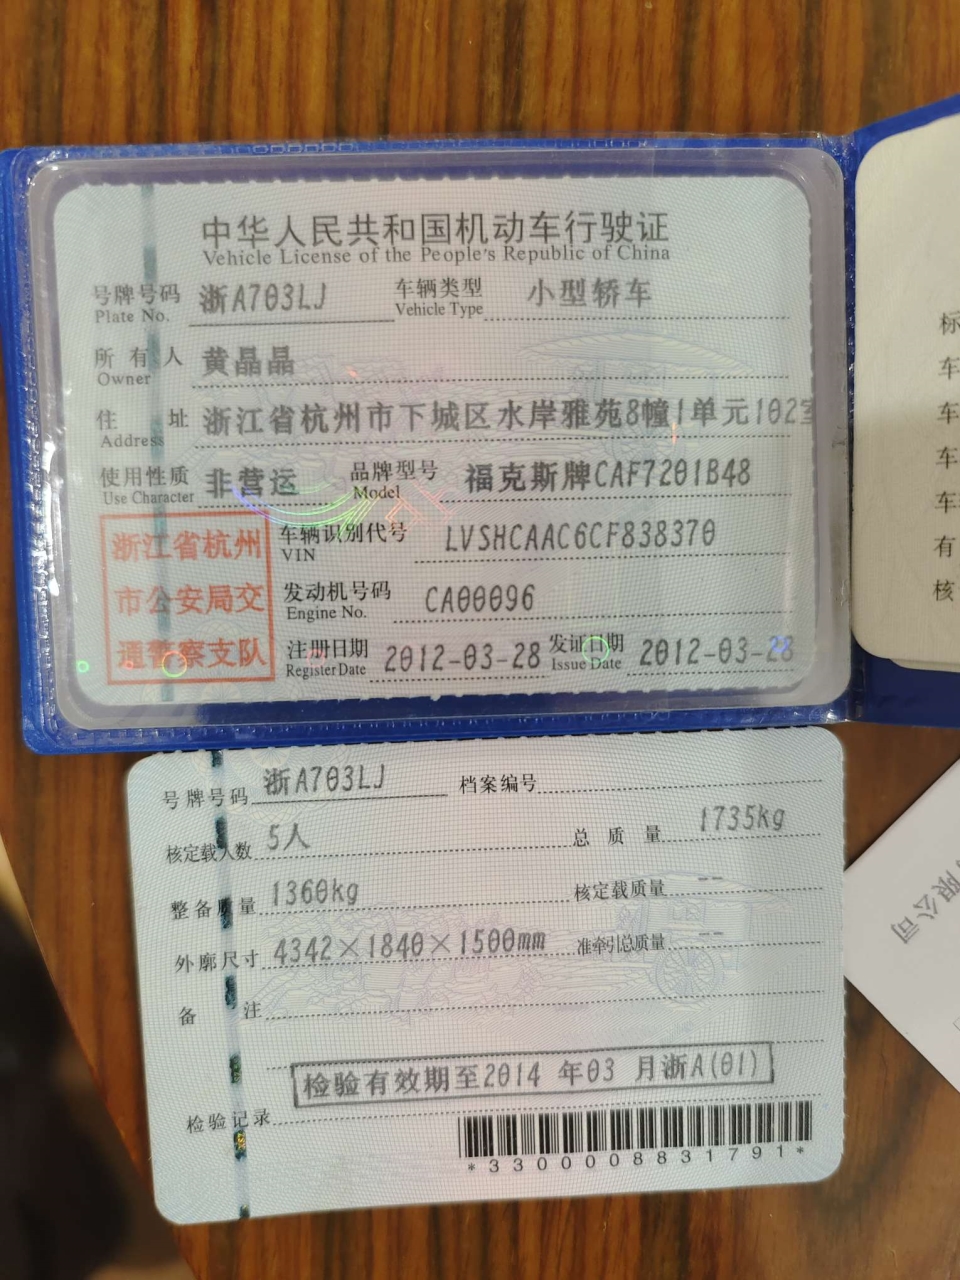 中华人民共和国机动车行驶证
Vehicle License of the People's Republic of China
号牌号码 浙A703LJ 车辆类型 小型轿车
Plate No. Vehicle Type
所有人 黄晶晶
Owner
住址 浙江省杭州市下城区水岸雅苑8幢1单元102室
Address
使用性质 非营运 品牌型号 福克斯牌CAF7201B48
Use Character Model
浙江省杭州
市公安局交
通警察支队
车辆识别代号 LVSHCAAC6CF838370
VIN
发动机号码 CA00096
Engine No.
注册日期 2012-03-28 发证日期 2012-03-28
Register Date Issue Date
号牌号码 浙A703LJ 档案编号
核定载人数 5人 总质量 1735kg
整备质量 1360kg 核定载质量 --
外廓尺寸 4342×1840×1500mm 准牵引总质量 --
备注
检验有效期至2014年03月浙A(01)
检验记录
*3300008831791*
标
车
车
车
车
有
核
限公司